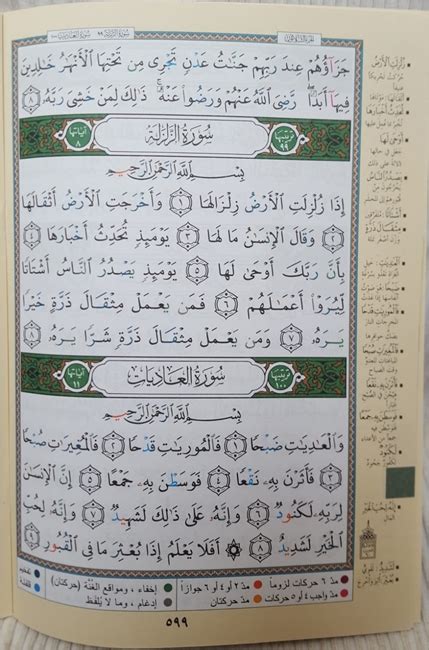 جَزَآؤُهُمْ عِندَ رَبِّهِمْ جَنَّـٰتُ عَدْنٍ تَجْرِى مِن تَحْتِهَا ٱلْأَنْهَـٰرُ خَـٰلِدِينَ
فِيهَآ أَبَدًا ۖ رَّضِىَ ٱللَّهُ عَنْهُمْ وَرَضُوا۟ عَنْهُ ۚ ذَٰلِكَ لِمَنْ خَشِىَ رَبَّهُۥ ٨
ترتيبها ٩٩ سُورَةُ الزَّلْزَلَةِ آياتها ٨
بِسْمِ ٱللَّهِ ٱلرَّحْمَـٰنِ ٱلرَّحِيمِ
إِذَا زُلْزِلَتِ ٱلْأَرْضُ زِلْزَالَهَا ١ وَأَخْرَجَتِ ٱلْأَرْضُ أَثْقَالَهَا
٢ وَقَالَ ٱلْإِنسَـٰنُ مَا لَهَا ٣ يَوْمَئِذٍ تُحَدِّثُ أَخْبَارَهَا ٤
بِأَنَّ رَبَّكَ أَوْحَىٰ لَهَا ٥ يَوْمَئِذٍ يَصْدُرُ ٱلنَّاسُ أَشْتَاتًا
لِّيُرَوْا۟ أَعْمَـٰلَهُمْ ٦ فَمَن يَعْمَلْ مِثْقَالَ ذَرَّةٍ خَيْرًا
يَرَهُۥ ٧ وَمَن يَعْمَلْ مِثْقَالَ ذَرَّةٍ شَرًّا يَرَهُۥ ٨
ترتيبها ١٠٠ سُورَةُ العَادِيَاتِ آياتها ١١
بِسْمِ ٱللَّهِ ٱلرَّحْمَـٰنِ ٱلرَّحِيمِ
وَٱلْعَـٰدِيَـٰتِ ضَبْحًا ١ فَٱلْمُورِيَـٰتِ قَدْحًا ٢ فَٱلْمُغِيرَٰتِ صُبْحًا
٣ فَأَثَرْنَ بِهِۦ نَقْعًا ٤ فَوَسَطْنَ بِهِۦ جَمْعًا ٥ إِنَّ ٱلْإِنسَـٰنَ
لِرَبِّهِۦ لَكَنُودٌ ٦ وَإِنَّهُۥ عَلَىٰ ذَٰلِكَ لَشَهِيدٌ ٧ وَإِنَّهُۥ لِحُبِّ
ٱلْخَيْرِ لَشَدِيدٌ ٨ ۞ أَفَلَا يَعْلَمُ إِذَا بُعْثِرَ مَا فِى ٱلْقُبُورِ ٩
مدّ ٦ حركات لزوماً مدّ ٢ أو ٤ أو ٦ جوازاً إخفاء، ومواقع الغنّة (حركتان) تفخيم
مدّ واجب ٤ أو ٥ حركات مدّ حركتان إدغام، وما لا يُلفظ قلقلة
٥٩٩